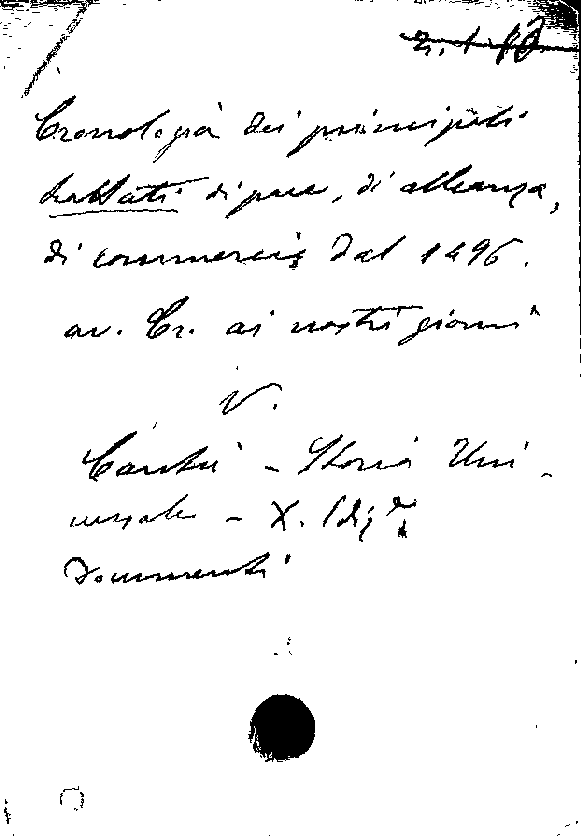 Cronologia dei principali
trattati di pace, di alleanza,
di commercio dal 1496.
av. Cr. ai nostri giorni
V.
Cantù - Storia Uni-
versale - X. Ediz.e
Documenti